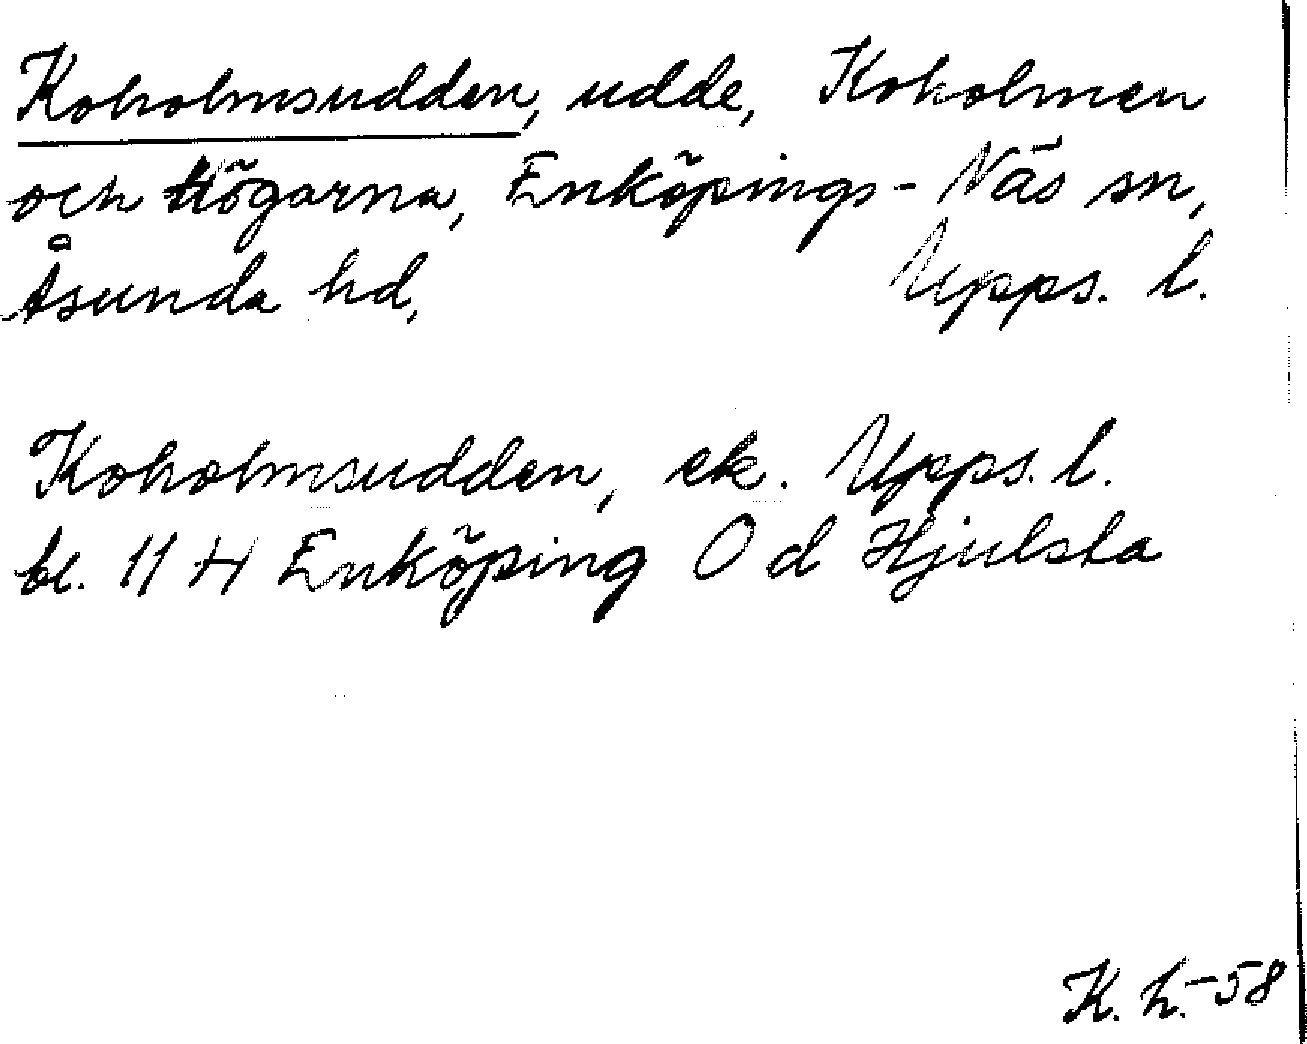 Koholmsudden, udde, Koholmen
och Högarna, Enköpings-Näs sn,
Åsunda hd, Upps. l.
Koholmsudden, ek. Upps. l.
bl. 11 H Enköping O d Hjulsta
K. h. -58